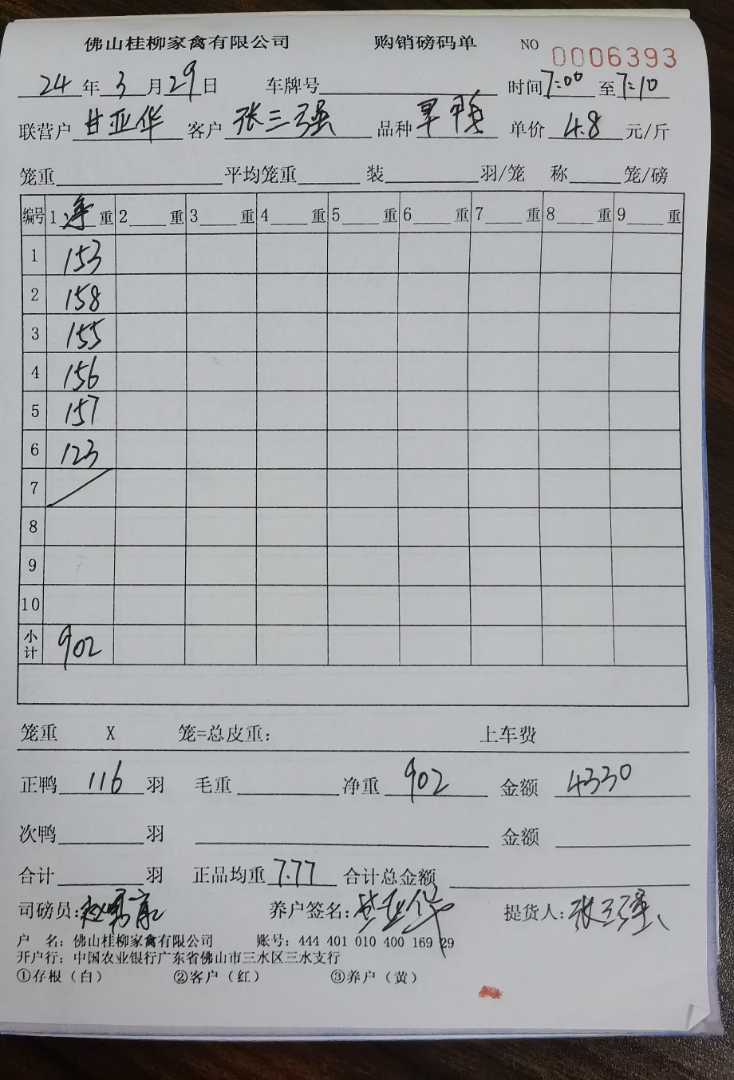 佛山桂柳家禽有限公司 购销磅码单 NO 0006393
24年3月29日 车牌号 时间7:00至7:10
联营户 甘亚华 客户 张三强 品种 旱鸭 单价 4.8 元/斤
笼重 平均笼重 装 羽/笼 称 笼/磅
编号 1净重 2 重 3 重 4 重 5 重 6 重 7 重 8 重 9 重
1 153
2 158
3 155
4 156
5 157
6 123
7
8
9
10
小计 902
笼重 X 笼=总皮重: 上车费
正鸭 116 羽 毛重 净重 902 金额 4330
次鸭 羽 金额
合计 羽 正品均重 7.77 合计总金额
司磅员: 养户签名:甘亚华 提货人:张三强
户 名: 佛山桂柳家禽有限公司 账号: 444 401 010 400 169 29
开户行: 中国农业银行广东省佛山市三水区三水支行
①存根(白) ②客户(红) ③养户(黄)